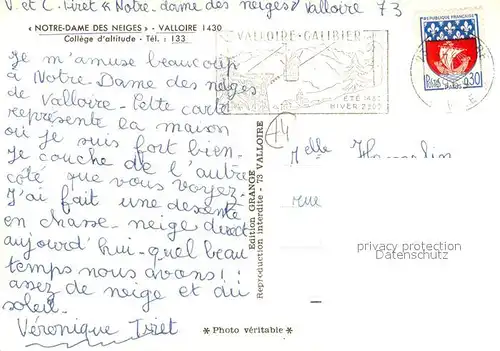 V. et C. Tiret « Notre-dame des neiges » Valloire 73
« NOTRE-DAME DES NEIGES » - VALLOIRE 1430
Collège d'altitude - Tél. : 133
Je m'amuse beaucoup
à Notre-Dame des neiges
de Valloire - Cette carte
représente la maison
où je suis fort bien-
Je couche de l'autre
côté que vous voyez.
J'ai fait une descente
en chasse-neige direct
aujourd'hui - quel beau
temps nous avons !!
assez de neige et du
soleil.
Véronique Tiret
VALLOIRE-GALIBIER
ÉTÉ 1430
HIVER
74
RÉPUBLIQUE FRANÇAISE
POSTES
0,30
Edition GRANGE
Reproduction interdite - 73 VALLOIRE
Melle
rue
privacy protection
Datenschutz
* Photo véritable *